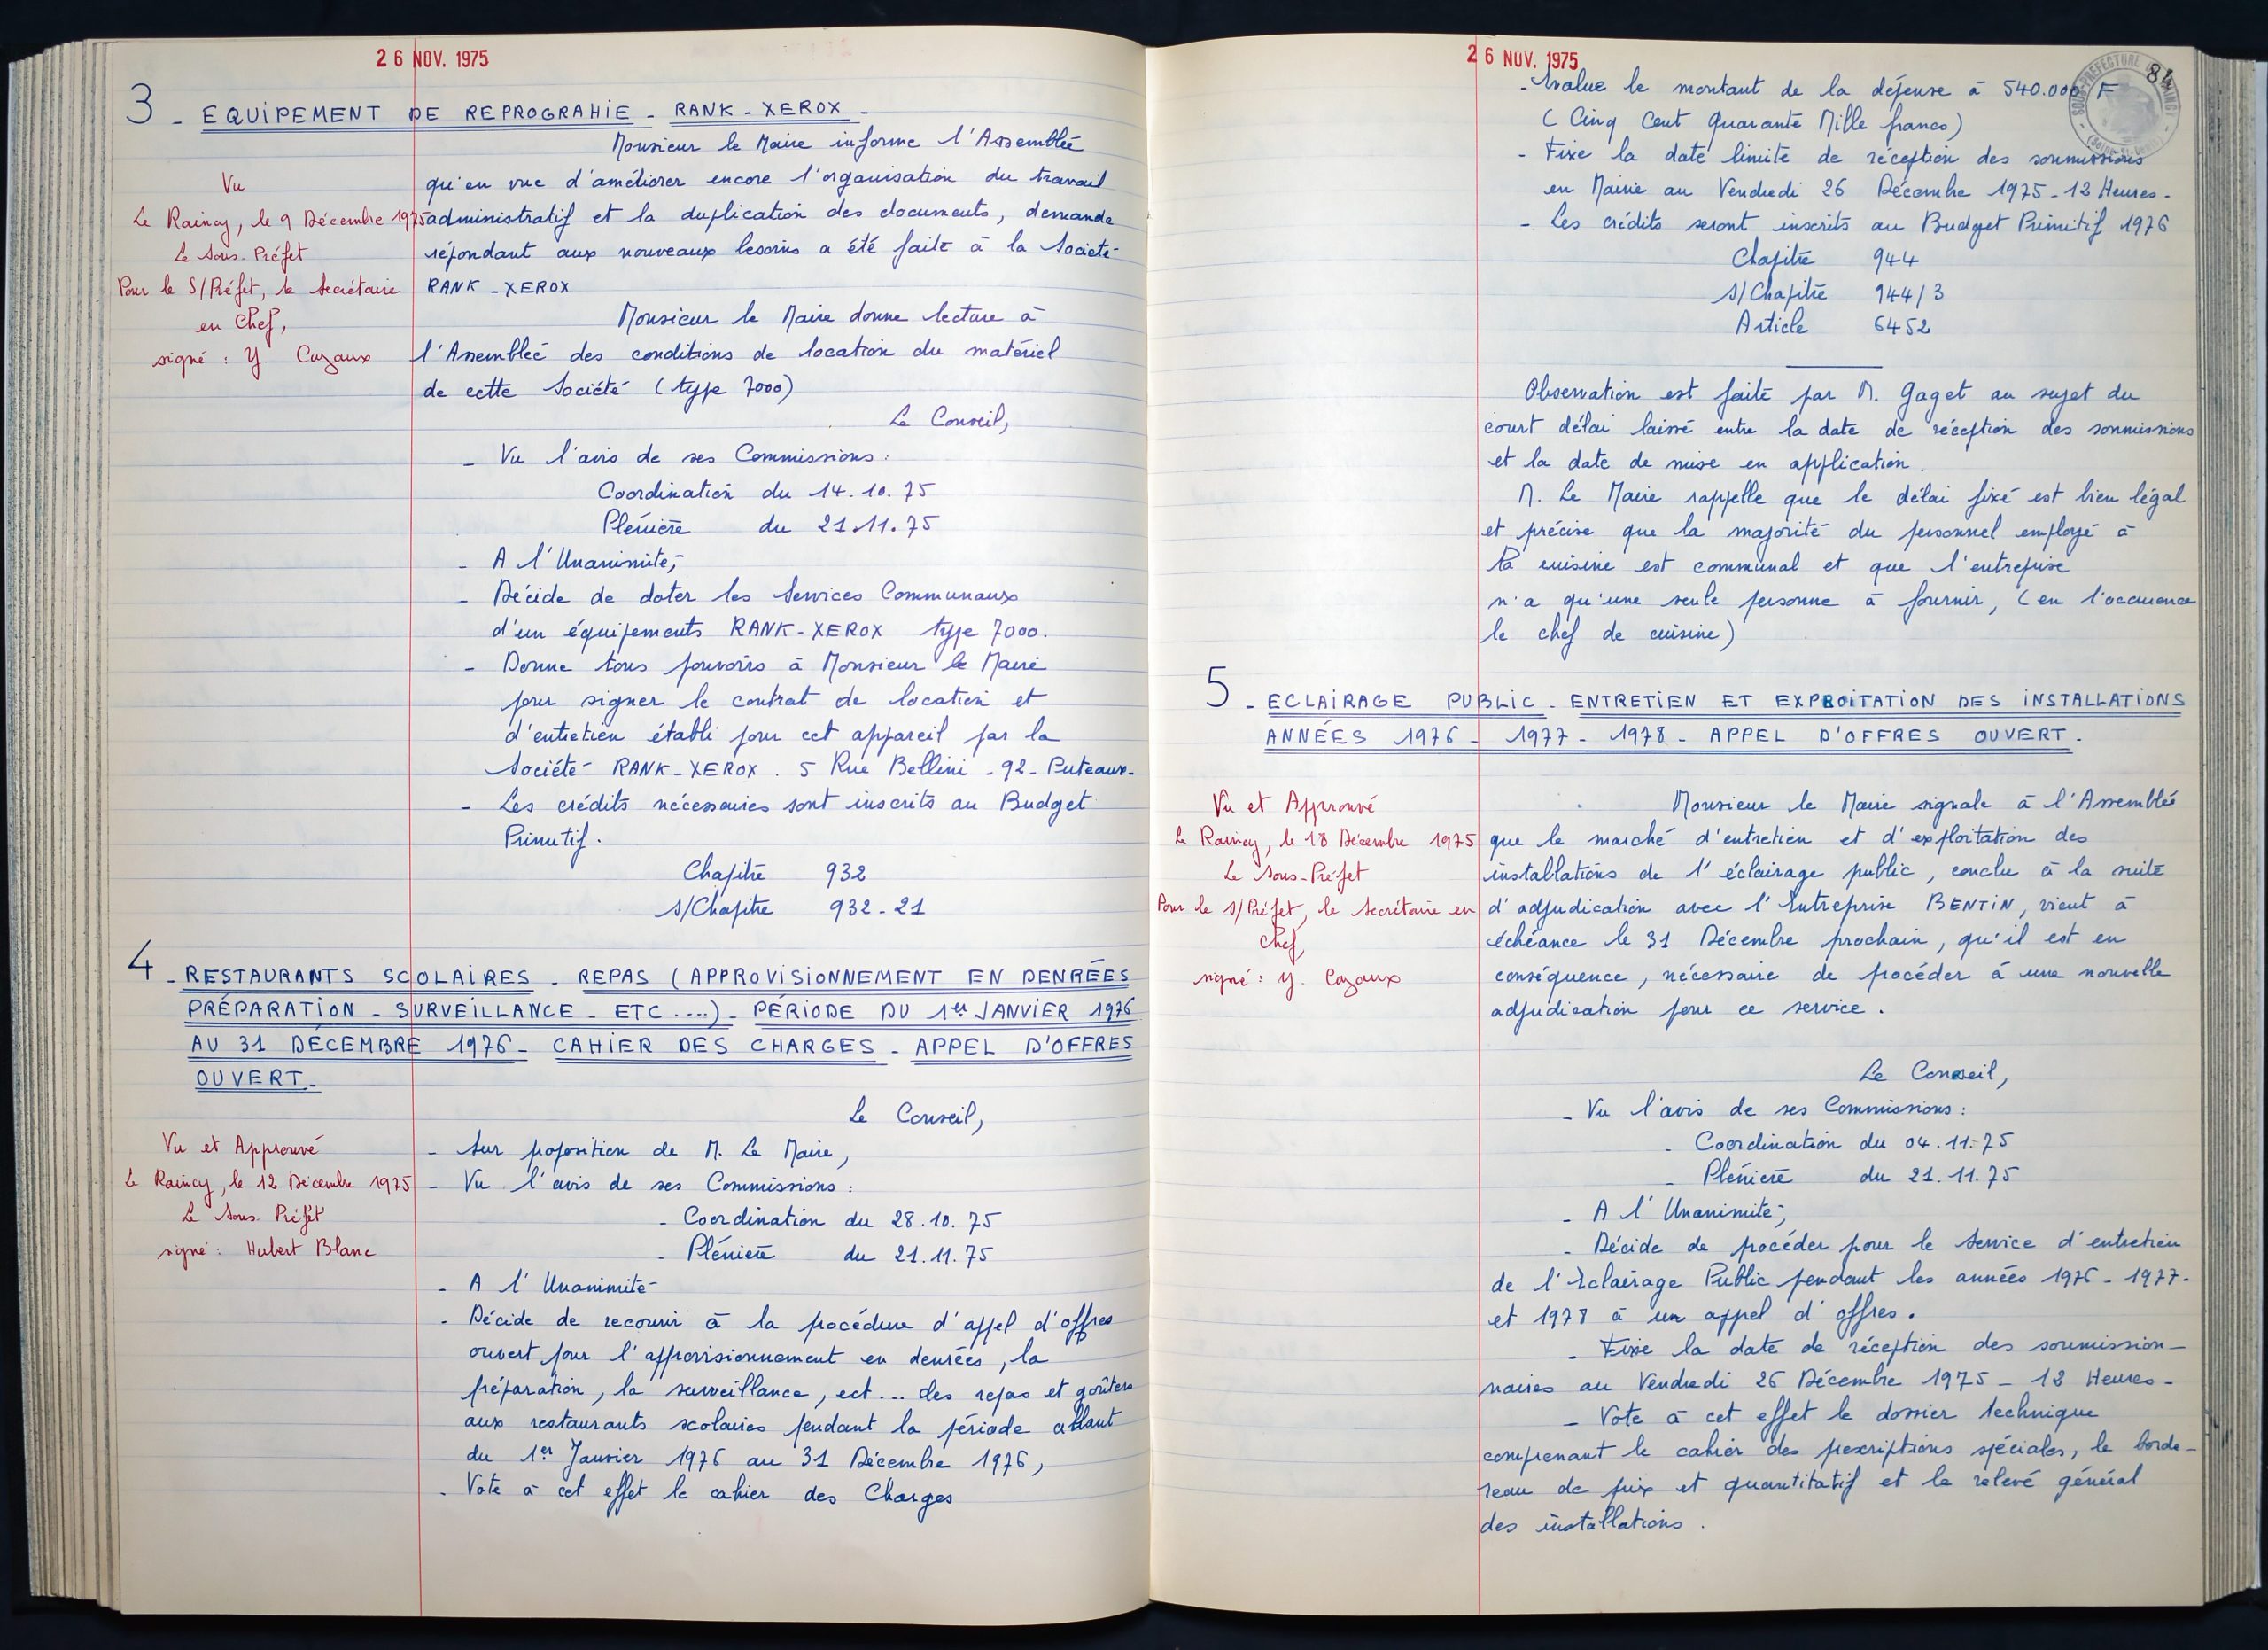 26 NOV. 1975
3 - EQUIPEMENT DE REPROGRAHIE - RANK - XEROX -
Monsieur le Maire informe l'Assemblée
qu'en vue d'améliorer encore l'organisation du travail
administratif et la duplication des documents, demande
répondant aux nouveaux besoins a été faite à la Société
RANK - XEROX
Vu
Le Raincy, le 9 Décembre 1975
Le Sous-Préfet
Pour le S/Préfet, le Secrétaire
en Chef,
signé : Y. Cazaux
Monsieur le Maire donne lecture à
l'Assemblée des conditions de location du matériel
de cette Société (type 7000)
Le Conseil,
- Vu l'avis de ses Commissions :
Coordination du 14.10.75
Plénière du 21.11.75
- A l'Unanimité,
- Décide de doter les Services Communaux
d'un équipements RANK-XEROX type 7000.
- Donne tous pouvoirs à Monsieur le Maire
pour signer le contrat de location et
d'entretien établi pour cet appareil par la
Société RANK-XEROX . 5 Rue Bellini - 92 - Puteaux -
- Les crédits nécessaires sont inscrits au Budget
Primitif.
Chapitre 932
S/Chapitre 932-21
4 - RESTAURANTS SCOLAIRES - REPAS (APPROVISIONNEMENT EN DENRÉES
PRÉPARATION - SURVEILLANCE - ETC ....) - PÉRIODE DU 1er JANVIER 1976
AU 31 DÉCEMBRE 1976 - CAHIER DES CHARGES - APPEL D'OFFRES
OUVERT -
Le Conseil,
Vu et Approuvé
Le Raincy, le 12 Décembre 1975
Le Sous-Préfet
signé : Hubert Blanc
- Sur proposition de M. Le Maire,
- Vu l'avis de ses Commissions :
- Coordination du 28.10.75
- Plénière du 21.11.75
- A l'Unanimité
- Décide de recourir à la procédure d'appel d'offres
ouvert pour l'approvisionnement en denrées, la
préparation, la surveillance, ect... des repas et goûters
aux restaurants scolaires pendant la période allant
du 1er Janvier 1976 au 31 Décembre 1976,
- Vote à cet effet le cahier des Charges
26 NOV. 1975
84
SOUS-PRÉFECTURE
- Evalue le montant de la dépense à 540.000 F
(Cinq Cent Quarante Mille francs)
- Fixe la date limite de réception des soumissions
en Mairie au Vendredi 26 Décembre 1975 - 12 Heures -
- Les crédits seront inscrits au Budget Primitif 1976
Chapitre 944
S/Chapitre 944/3
Article 6452
Observation est faite par M. Gaget au sujet du
court délai laissé entre la date de réception des soumissions
et la date de mise en application.
M. Le Maire rappelle que le délai fixé est bien légal
et précise que la majorité du personnel employé à
la cuisine est communal et que l'entreprise
n'a qu'une seule personne à fournir, (en l'occurence
le chef de cuisine)
5 - ECLAIRAGE PUBLIC - ENTRETIEN ET EXPLOITATION DES INSTALLATIONS
ANNÉES 1976 - 1977 - 1978 - APPEL D'OFFRES OUVERT -
Vu et Approuvé
Le Raincy, le 18 Décembre 1975
Le Sous-Préfet
Pour le S/Préfet, le Secrétaire en
Chef,
signé : Y. Cazaux
Monsieur le Maire signale à l'Assemblée
que le marché d'entretien et d'exploitation des
installations de l'éclairage public, conclu à la suite
d'adjudication avec l'Entreprise BENTIN, vient à
échéance le 31 Décembre prochain, qu'il est en
conséquence, nécessaire de procéder à une nouvelle
adjudication pour ce service.
Le Conseil,
- Vu l'avis de ses Commissions :
- Coordination du 04.11.75
- Plénière du 21.11.75
- A l'Unanimité,
- Décide de procéder pour le Service d'entretien
de l'Eclairage Public pendant les années 1976 - 1977 -
et 1978 à un appel d'offres.
- Fixe la date de réception des soumission-
naires au Vendredi 26 Décembre 1975 - 12 Heures -
- Vote à cet effet le dossier technique
comprenant le cahier des prescriptions spéciales, le borde-
reau de prix et quantitatif et le relevé général
des installations.